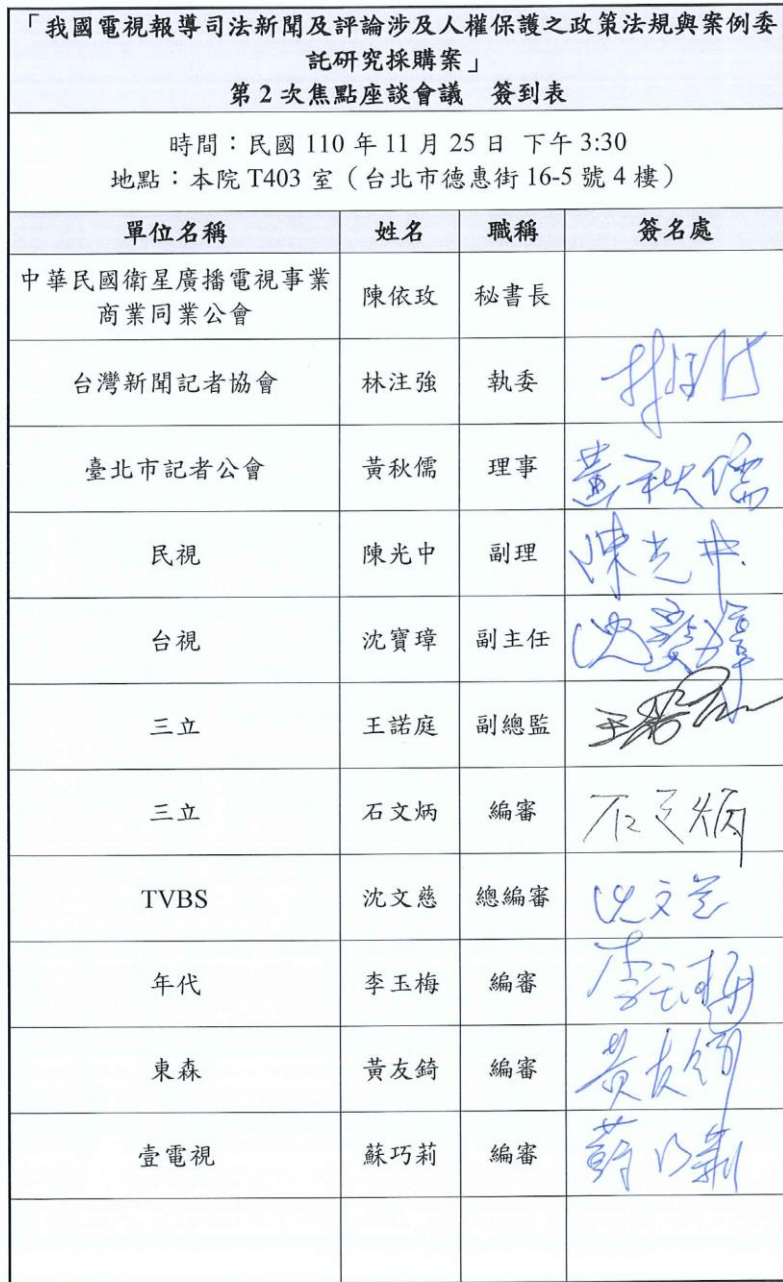 「我國電視報導司法新聞及評論涉及人權保護之政策法規與案例委
託研究採購案」
第 2 次焦點座談會議 簽到表
時間：民國 110 年 11 月 25 日 下午 3:30
地點：本院 T403 室（台北市德惠街 16-5 號 4 樓）
單位名稱 姓名 職稱 簽名處
中華民國衛星廣播電視事業
商業同業公會 陳依玫 秘書長
台灣新聞記者協會 林注強 執委
臺北市記者公會 黃秋儒 理事 黃秋儒
民視 陳光中 副理 陳光中
台視 沈寶璋 副主任 沈寶璋
三立 王諾庭 副總監
三立 石文炳 編審 石文炳
TVBS 沈文慈 總編審 沈文慈
年代 李玉梅 編審 李玉梅
東森 黃友錡 編審 黃友錡
壹電視 蘇巧莉 編審 蘇巧莉